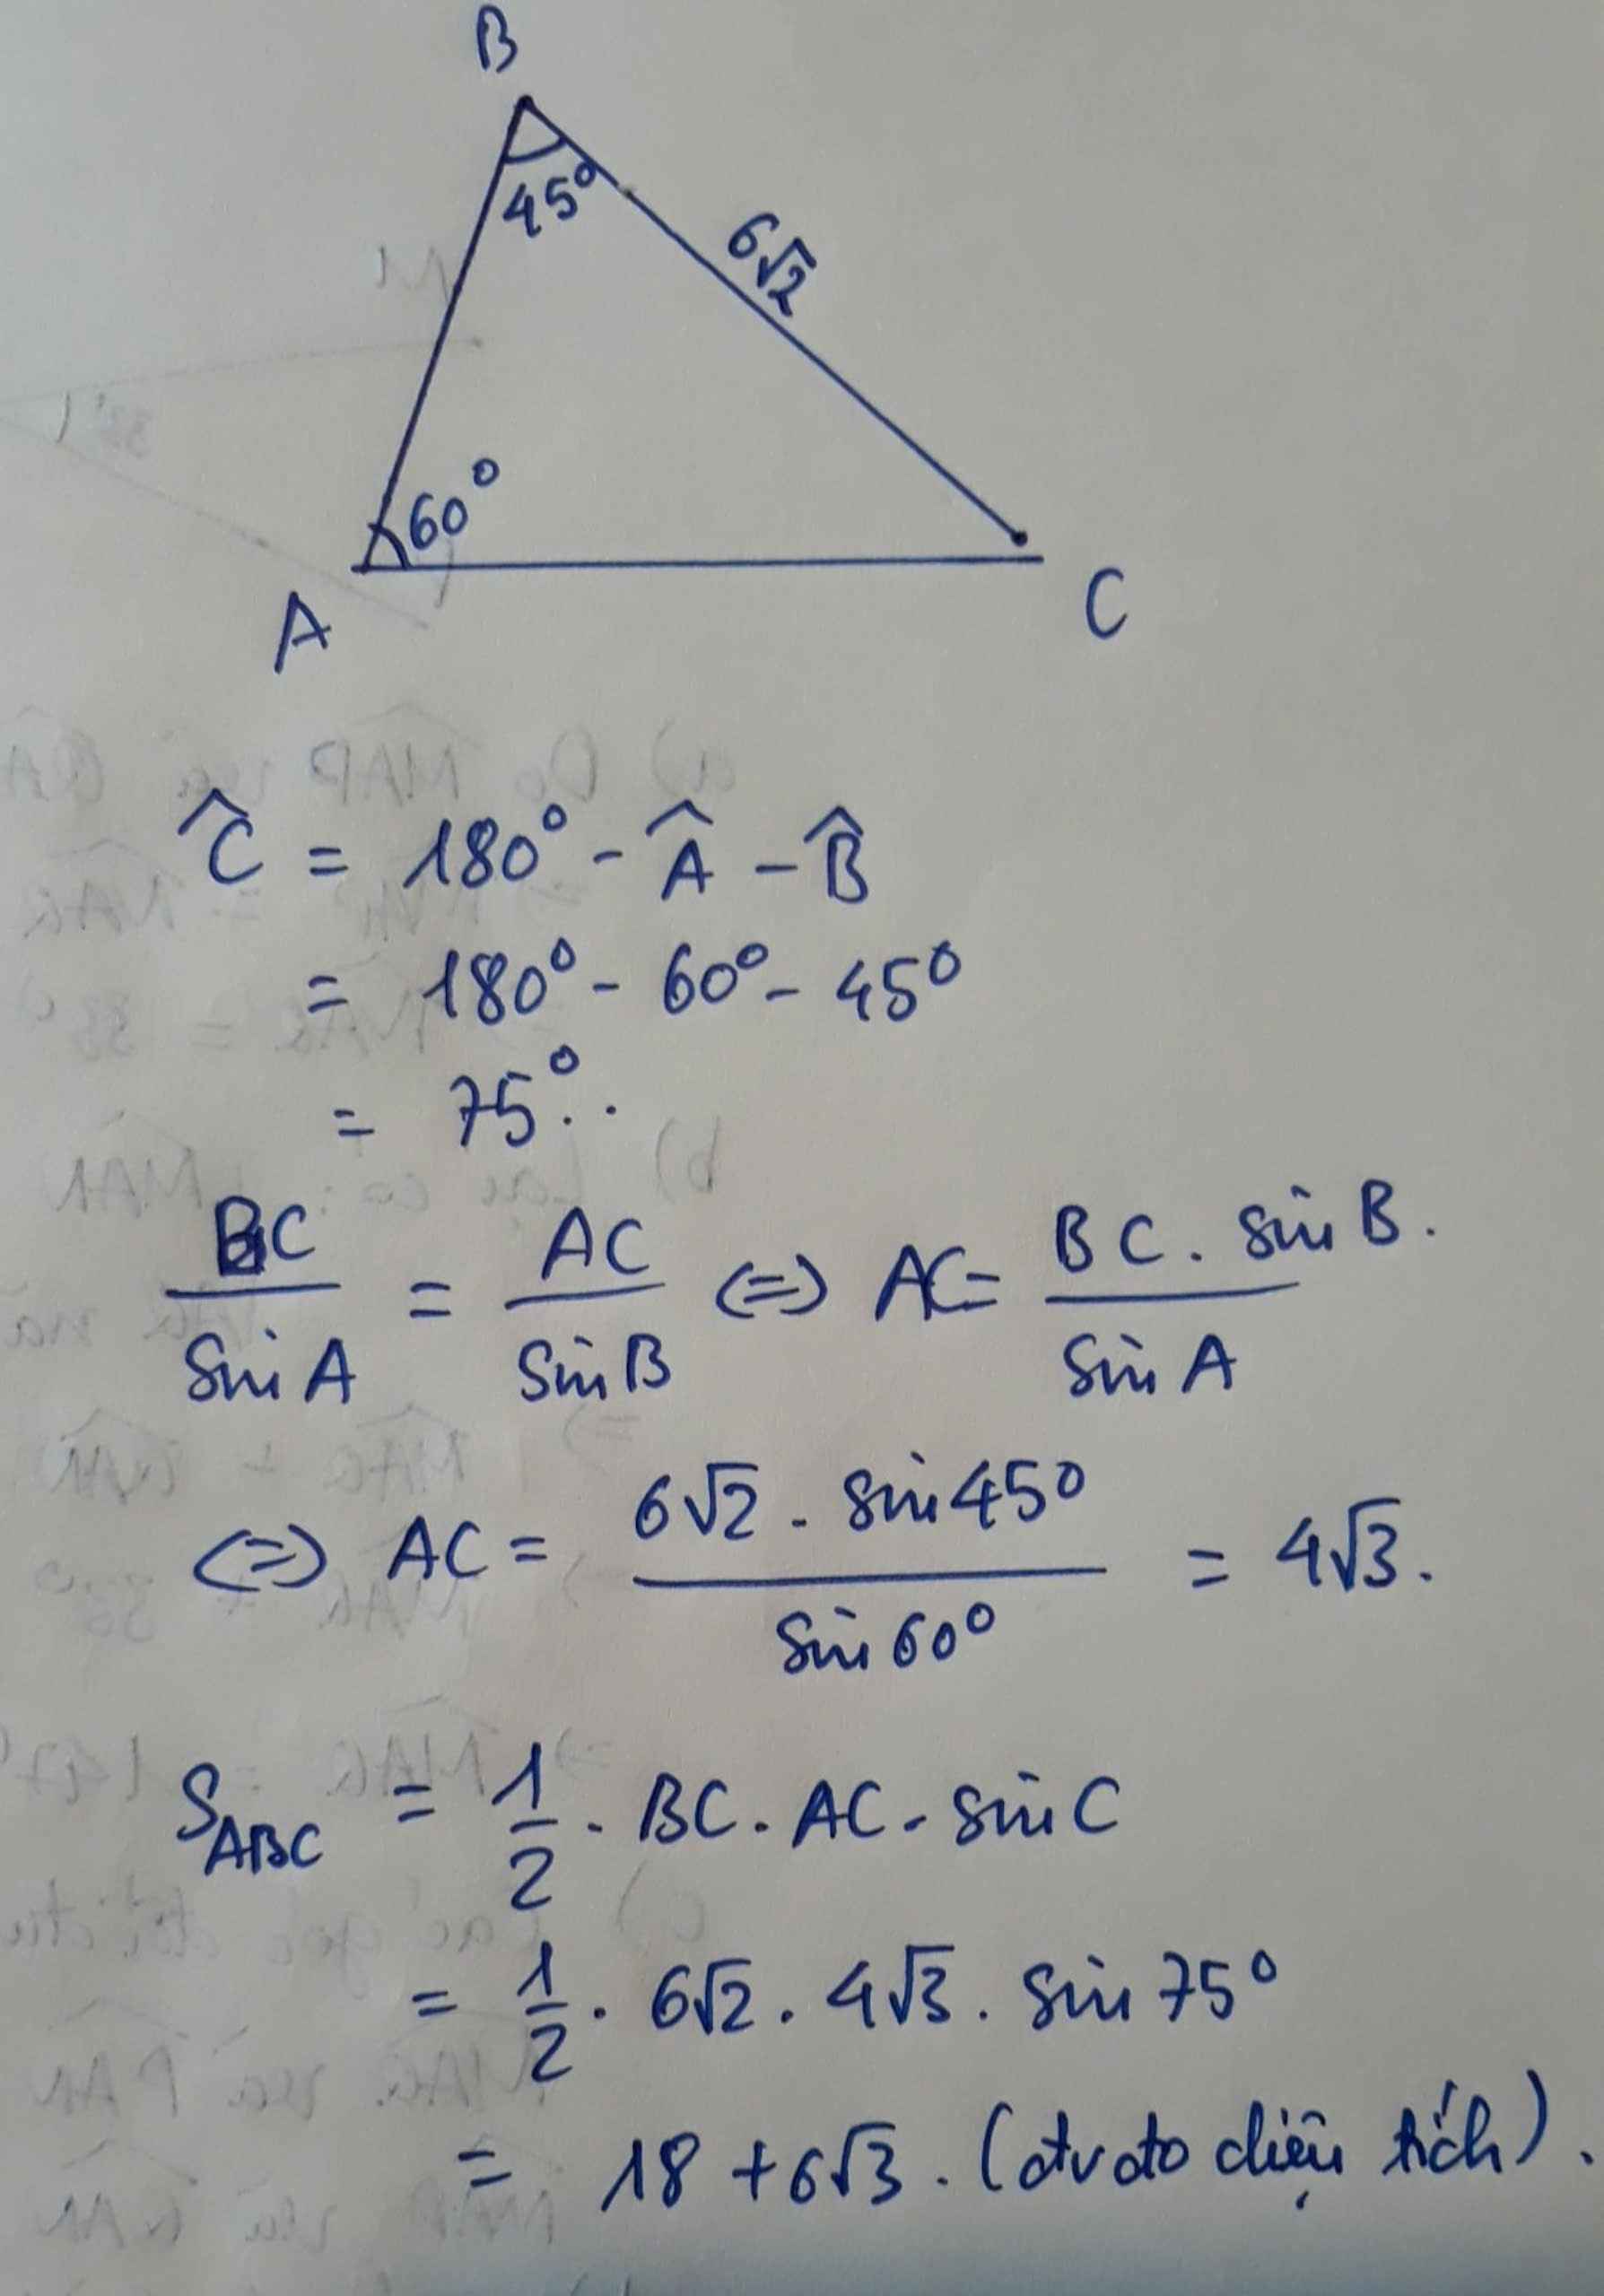 B
45°
6√2
60°
A
C
Ĉ = 180° - Â - B̂
= 180° - 60° - 45°
= 75°..
BC/sin A = AC/sin B <=> AC = BC . sin B/sin A.
<=> AC = 6√2 . sin 45°/sin 60° = 4√3.
S_ABC = 1/2 . BC . AC . sin C
= 1/2 . 6√2 . 4√3 . sin 75°
= 18 + 6√3 . (đv đo diện tích).